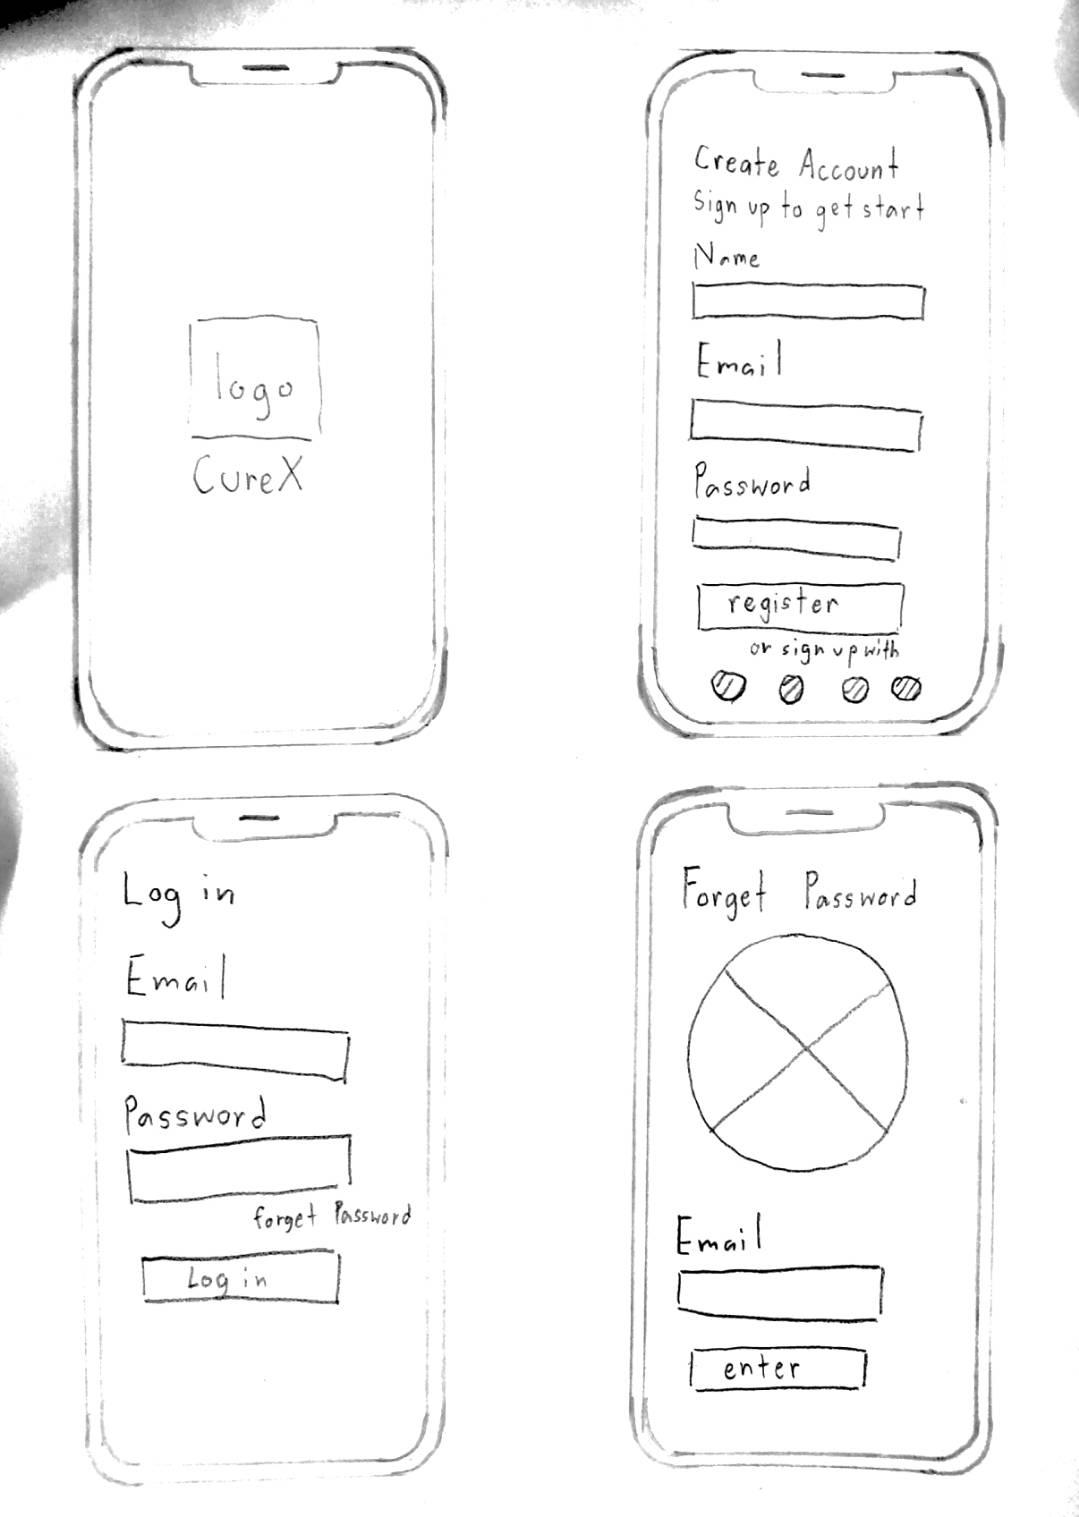 logo
CureX
Create Account
Sign up to get start
Name
Email
Password
register
or sign up with
Log in
Email
Password
forget Password
Log in
Forget Password
Email
enter